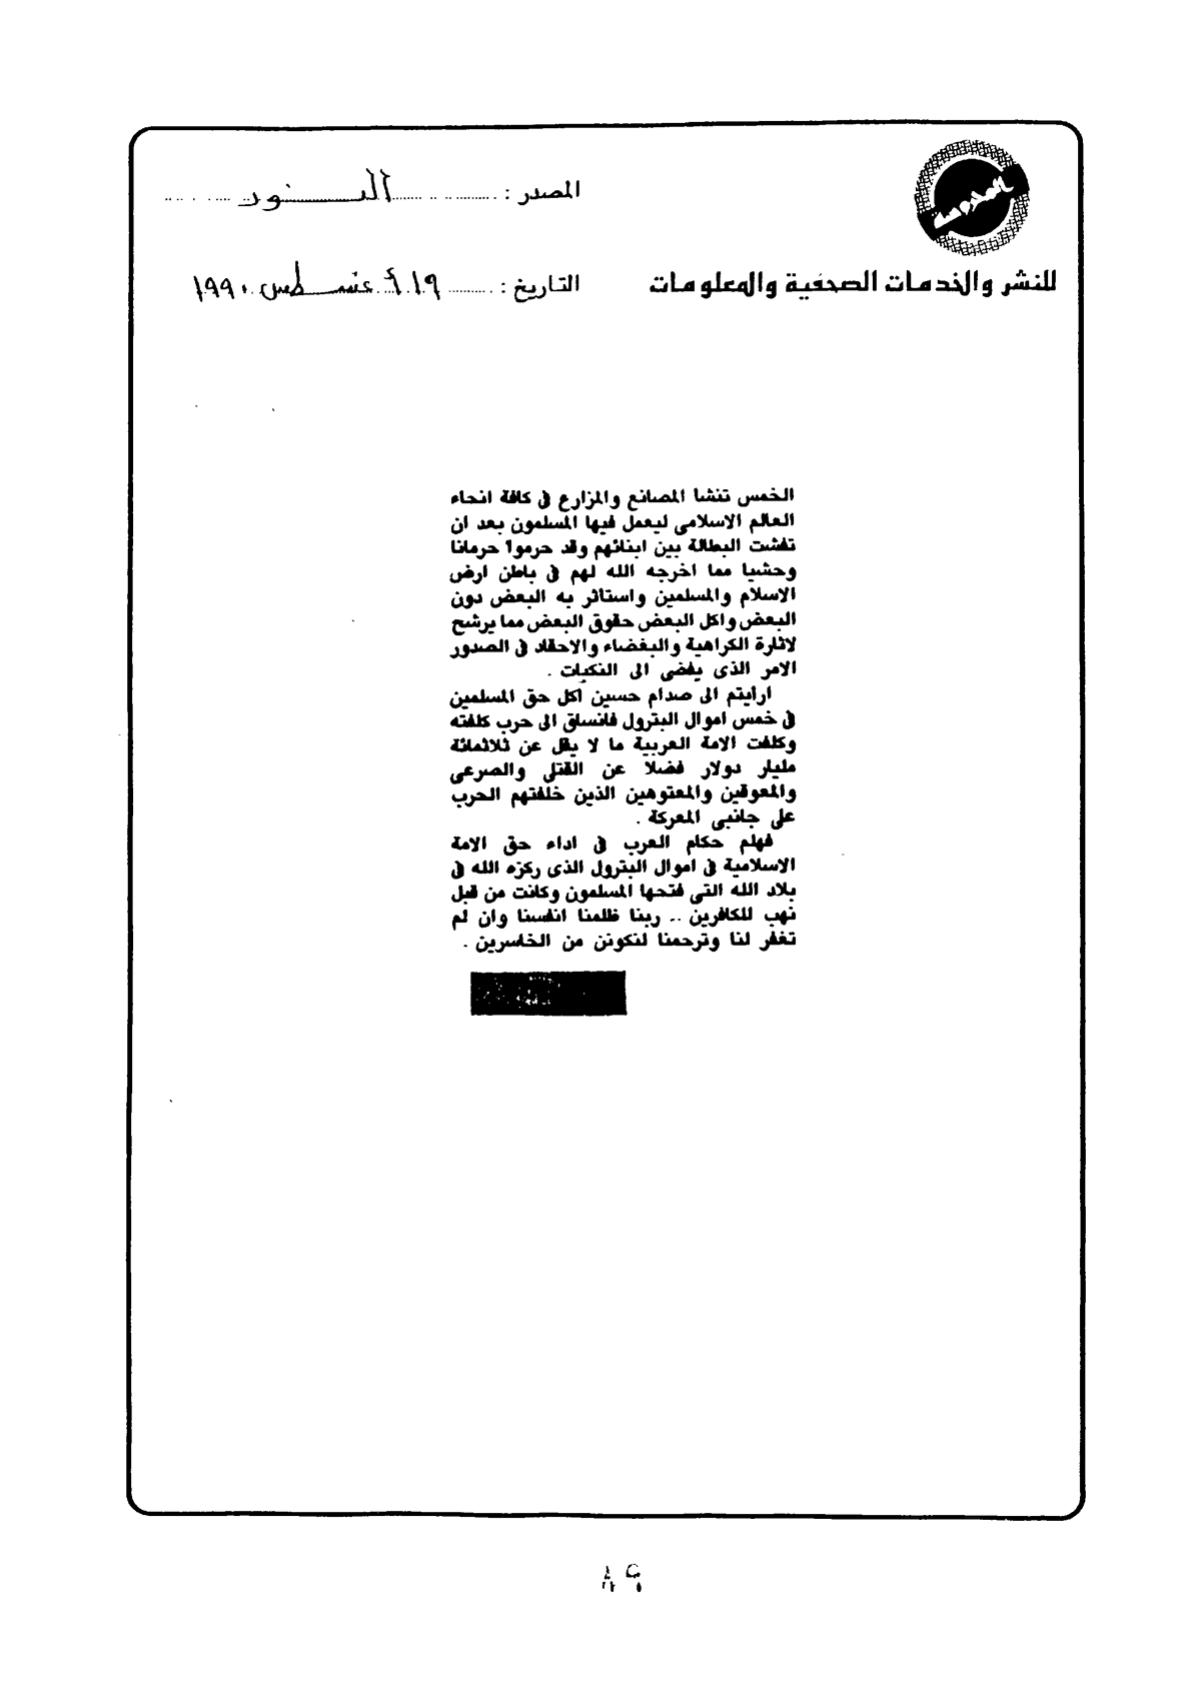 المعلومات
للنشر والخدمات الصحفية والمعلومات
المصدر : النور
التاريخ : ١٩ أغسطس ١٩٩٠
الخمس تنشا المصانع والمزارع فى كافة انحاء
العالم الاسلامى ليعمل فيها المسلمون بعد ان
تفشت البطالة بين ابنائهم وقد حرموا حرمانا
وحشيا مما اخرجه الله لهم فى باطن ارض
الاسلام والمسلمين واستاثر به البعض دون
البعض واكل البعض حقوق البعض مما يرشح
لاثارة الكراهية والبغضاء والاحقاد فى الصدور
الامر الذى يفضى الى النكبات .
ارايتم الى صدام حسين اكل حق المسلمين
فى خمس اموال البترول فانساق الى حرب كلفته
وكلفت الامة العربية ما لا يقل عن ثلاثمائة
مليار دولار فضلا عن القتلى والصرعى
والمعوقين والمعتوهين الذين خلفتهم الحرب
على جانبى المعركة .
فهلم حكام العرب فى اداء حق الامة
الاسلامية فى اموال البترول الذى ركزه الله فى
بلاد الله التى فتحها المسلمون وكانت من قبل
نهب للكافرين .. ربنا ظلمنا انفسنا وان لم
تغفر لنا وترحمنا لنكونن من الخاسرين .
٨٩